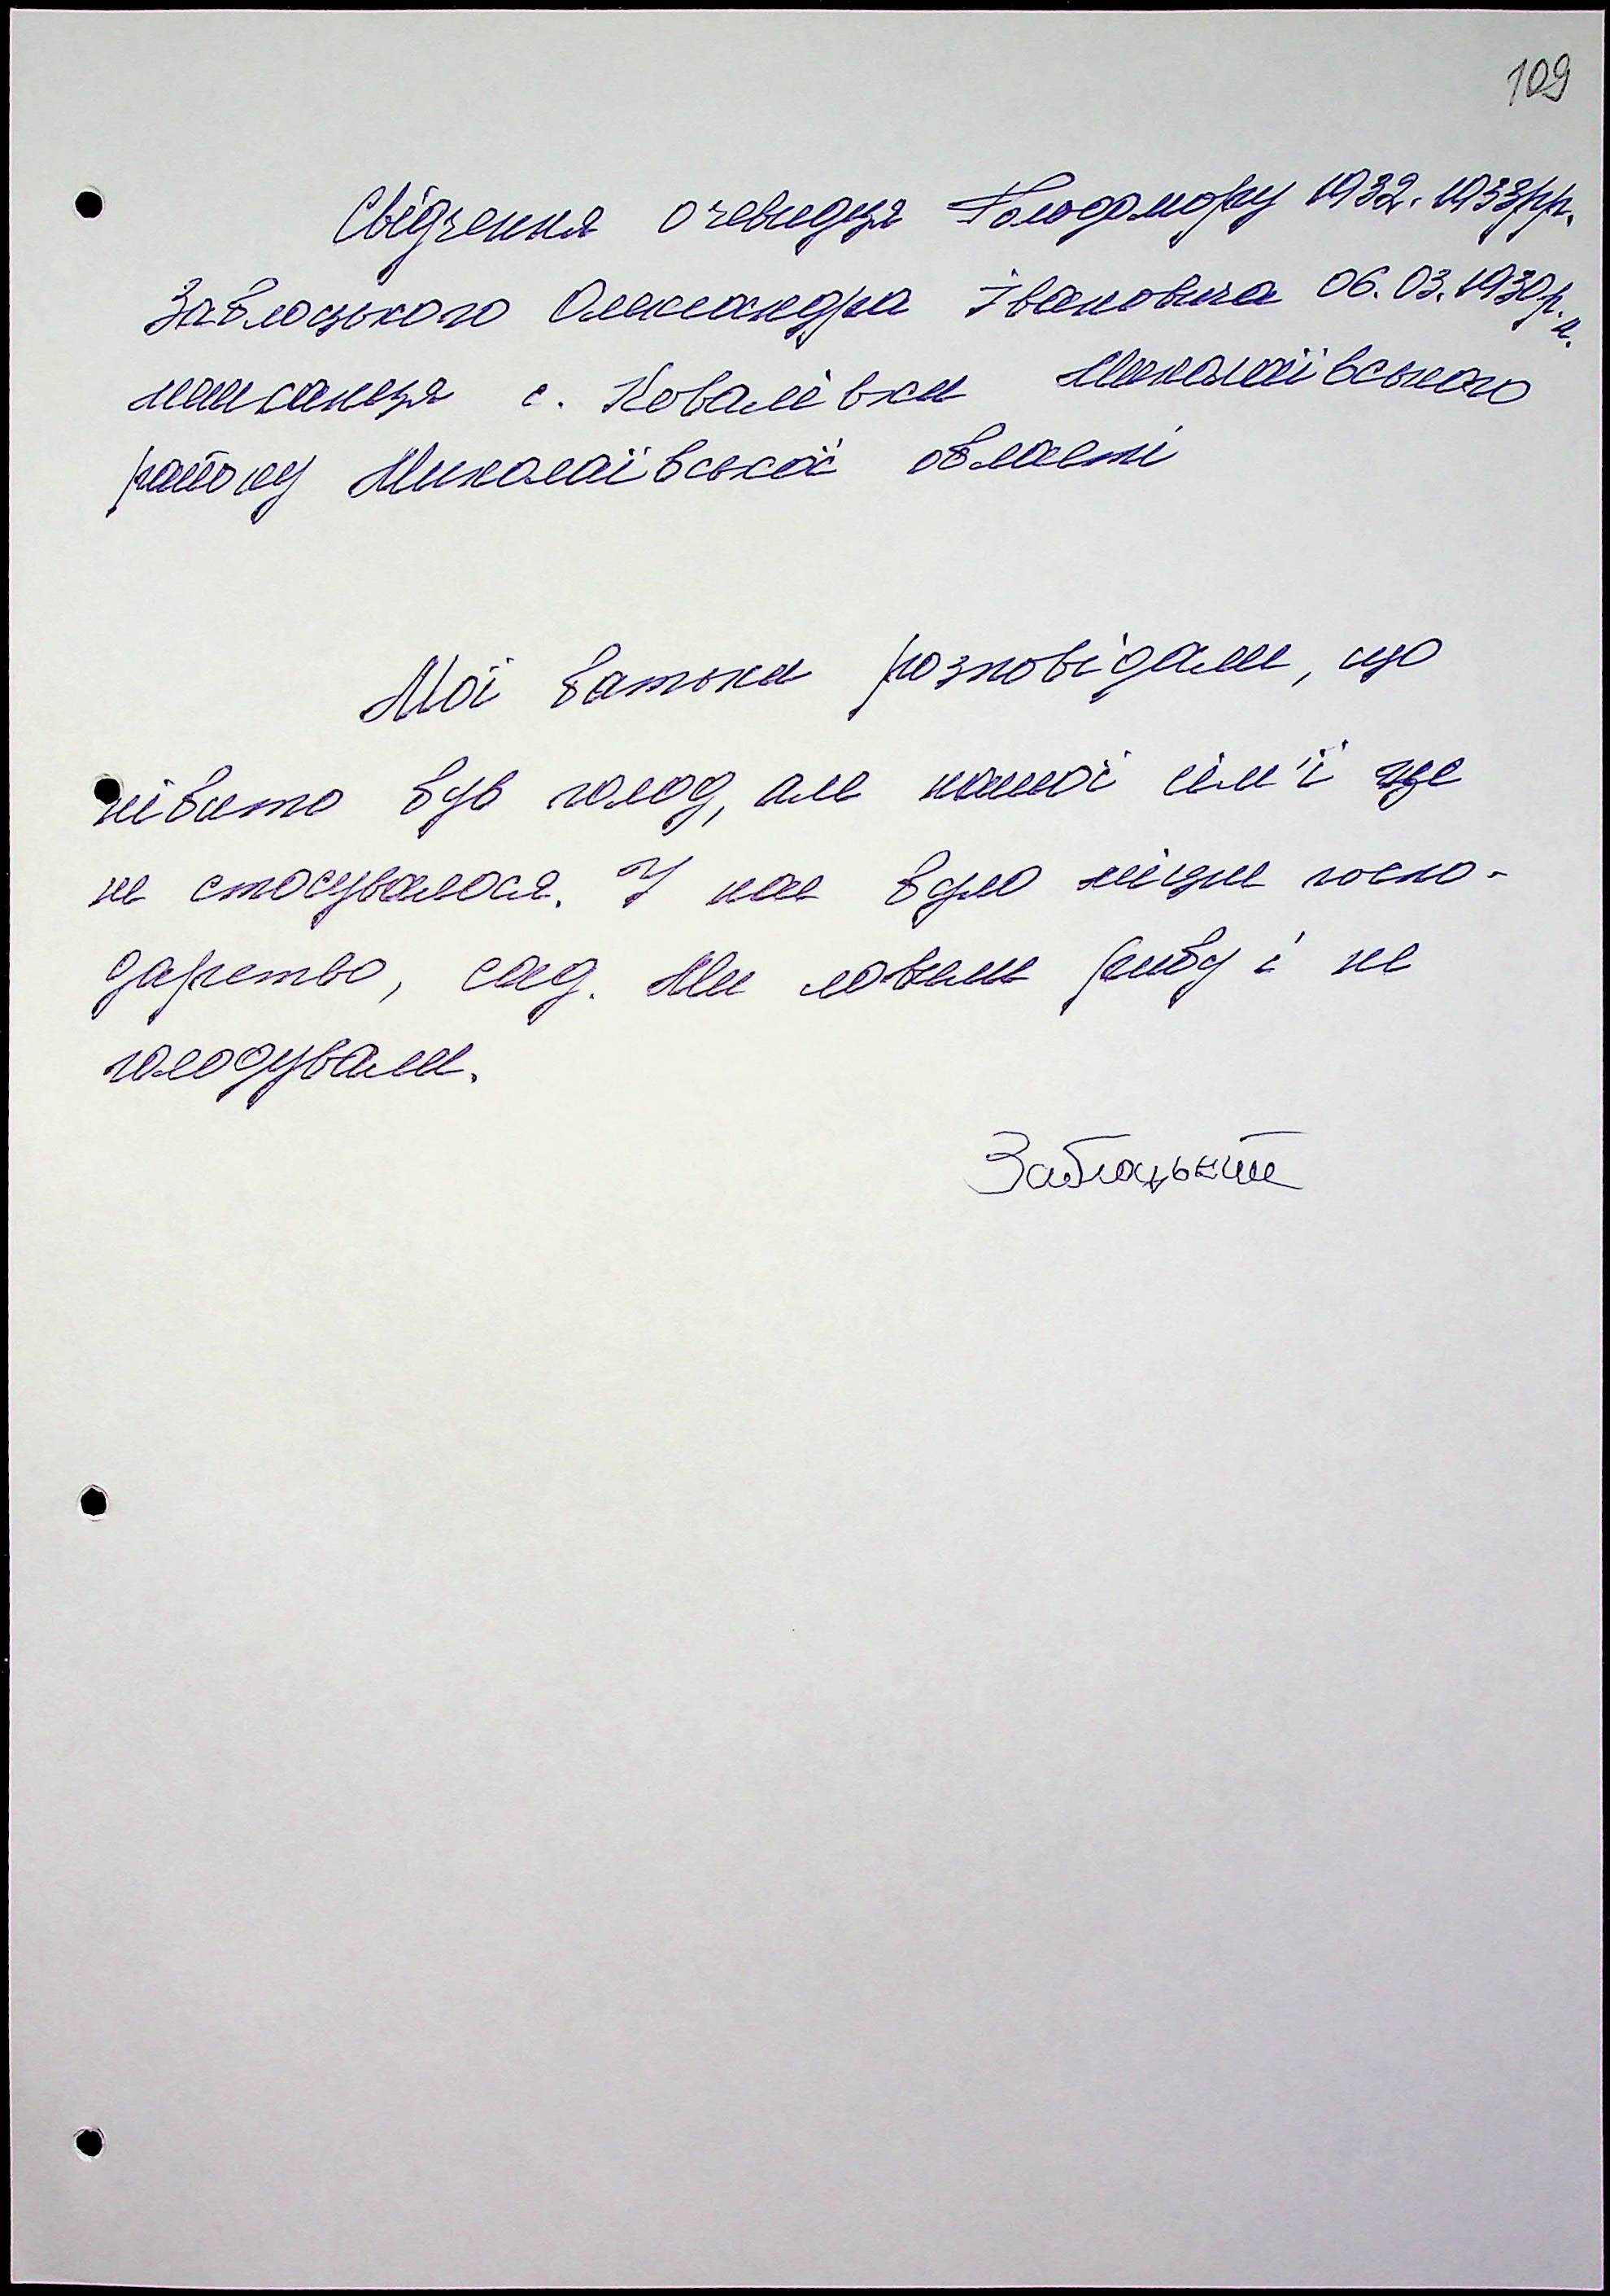 109
Свідчення очевидця Голодомору 1932-1933рр.
Заблоцького Олександра Івановича 06.03.1930р.н.
мешканця с. Ковалівки Миколаївського
району Миколаївської області
Мої батьки розповідали, що
нібито був голод, але нашої сім'ї це
не стосувалося. У нас було міцне госпо-
дарство, сад. Ми ловили рибу і не
голодували.
Заблоцький